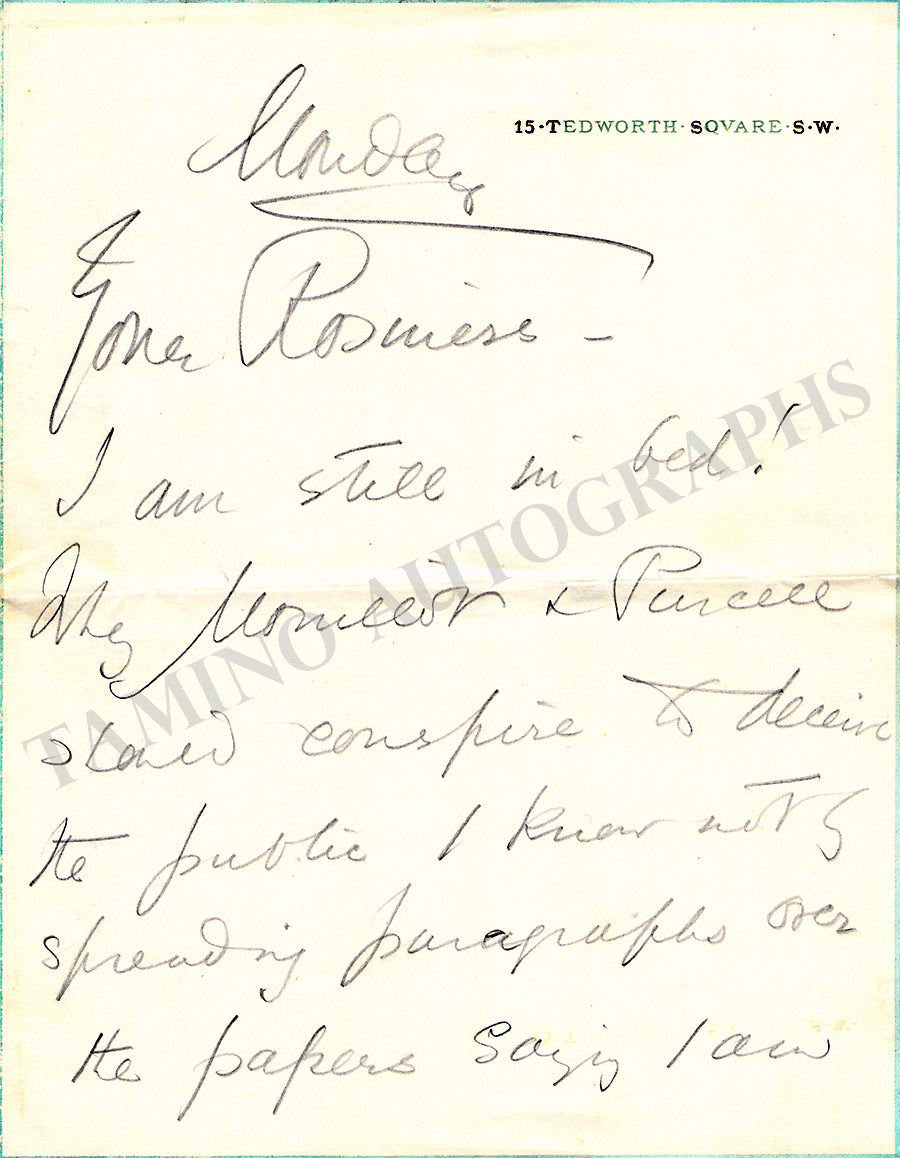 15·TEDWORTH·SQVARE·S·W·
Monday
Your Rosiness –
I am still in bed!
Why Mouillot & Purcell
should conspire to deceive
the public I know not by
spreading paragraphs over
the papers saying I am
TAMINO AUTOGRAPHS